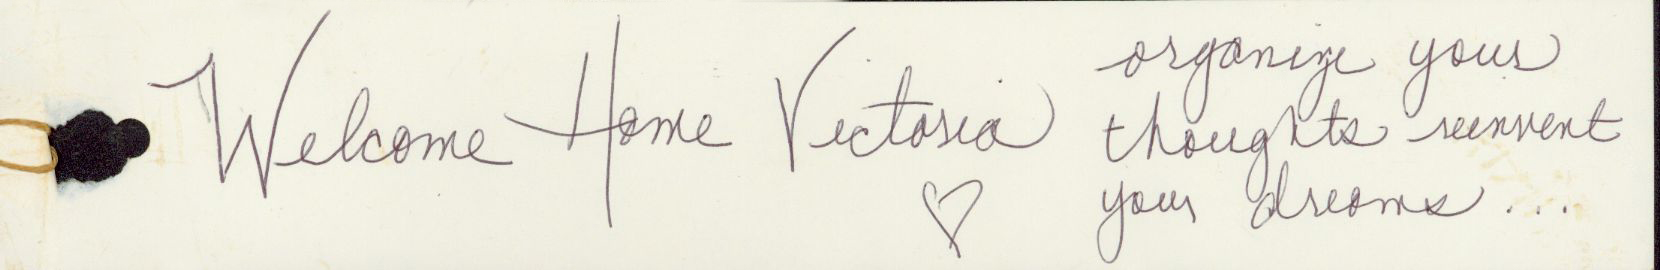 Welcome Home Victoria
organize your
thoughts reinvent
your dreams...